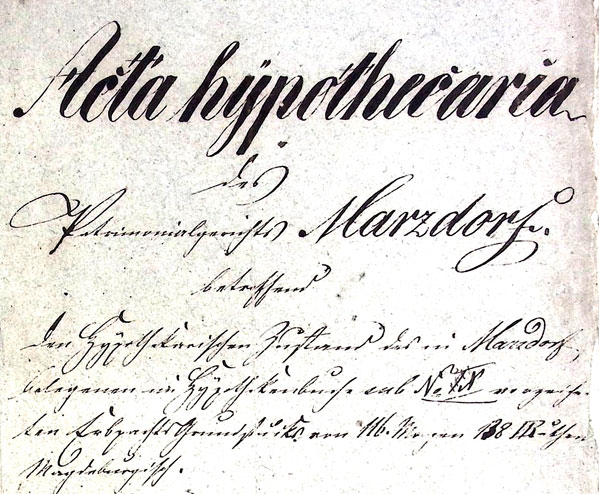 Acta hÿpothecaria
des
Patrimonialgerichts Marzdorf.
betreffend
den Hÿpothekarischen Zustand des in Marzdorf,
belegenen im Hÿpothekenbuche sub No. verzeich-
ten Erbpachts Grundstücks von 116. Morgen 138 □Ruthen
Magdeburgisch.